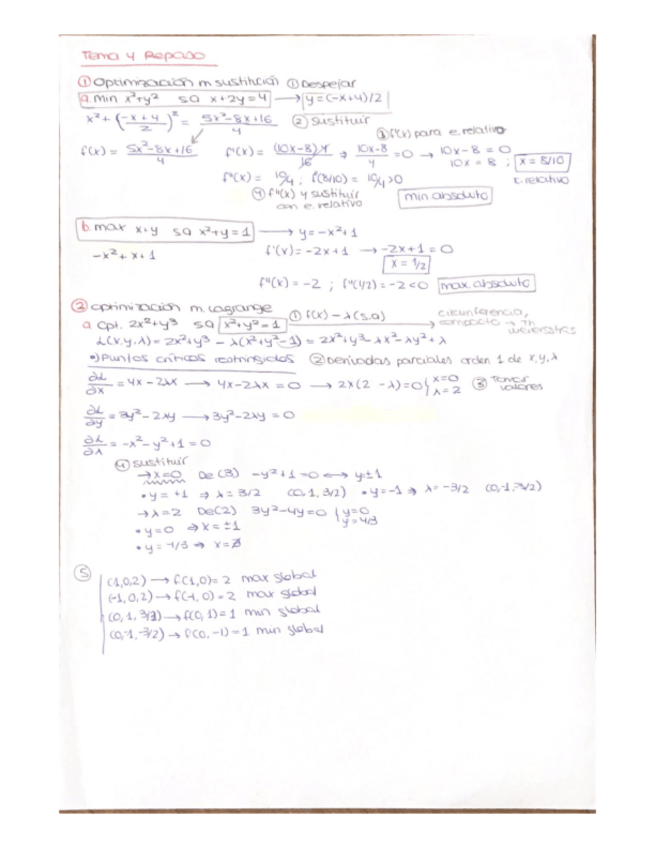 Tema 4 Repaso
① Optimización m sustitución ① Despejar
a. min x²+y² s.a x+2y=4 → y=(-x+4)/2
x² + (-x+4/2)² = 5x²-8x+16/4 ② sustituir
③ f'(x) para e. relativo
f(x) = 5x²-8x+16/4 f'(x) = (10x-8)·4/16 ⇒ 10x-8/4 = 0 → 10x-8=0
10x = 8 ; x = 8/10
f''(x) = 10/4 ; f(8/10) = 10/4 > 0 e. relativo
④ f''(x) y sustituir con e. relativo min absoluto
b. max x+y s.a x²+y=1 → y=-x²+1
-x²+x+1 f'(x)=-2x+1 → -2x+1=0
x = 1/2
f''(x) = -2 ; f''(1/2) = -2<0 max. absoluto
② optimización m. lagrange ① f(x) - λ(s.a)
a. Opt. 2x²+y³ s.a x²+y²=1 → circunferencia, compacto → Th weierstrss
L(x,y,λ) = 2x²+y³ - λ(x²+y²-1) = 2x²+y³-λx²-λy²+λ
•) Puntos críticos restringidos ② Derivadas parciales orden 1 de x,y,λ
∂L/∂x = 4x-2λx → 4x-2λx=0 → 2x(2-λ)=0 { x=0 λ=2 ③ Tomar valores
∂L/∂y = 3y²-2λy → 3y²-2λy=0
∂L/∂λ = -x²-y²+1=0
④ sustituir
→ x=0 De(3) -y²+1=0 ↔ y±1
• y=+1 ⇒ λ=3/2 (0,1,3/2) • y=-1 ⇒ λ=-3/2 (0,-1,-3/2)
→ λ=2 De(2) 3y²-4y=0 { y=0 y=4/3
• y=0 ⇒ x=±1
• y=4/3 ⇒ x=∄
⑤ (1,0,2) → f(1,0)=2 max global
(-1,0,2) → f(-1,0)=2 max global
(0,1,3/2) → f(0,1)=1 min global
(0,-1,-3/2) → f(0,-1)=1 min global